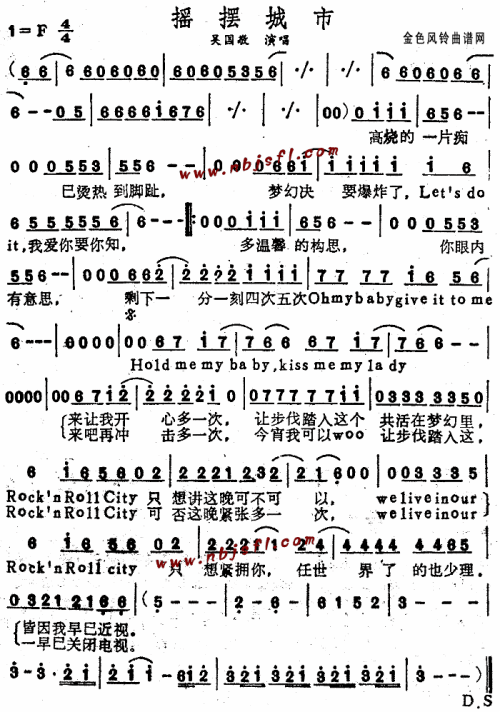 摇摆城市
1=F 4/4
吴国敬 演唱
金色风铃曲谱网
( 6 6 | 6 060606 0 | 6060 5356 | ·/· | ·/· | 6 060606 6 |
6 - - 0 5 | 6666 i676 | ·/· | ·/· | 00) 0 i i i | 6 5 6 - - |
高烧的 一片痴
www.nbjsfl.com
0 0 0 553 | 556 - - | 0 0 0 66i | i i i i i i 6 |
已烫热 到脚趾， 梦幻决 要爆炸了，Let's do
6 5 5 5 5 5 6 | 6 - - - :| 000 0 i i i | 6 5 6 - - | 0 0 0 553 |
it,我爱你要你知， 多温馨 的构思， 你眼内
556 - - | 000 662 | 2 2 2 2 i i i i | 77 77 i 6 5 |
有意思， 剩下一 分一刻四次五次Oh my baby give it to me
6 - - - | 0000 | 00 67 i7 | 7 6 6 7 i7 | 7 6 6 - - |
Hold me my baby, kiss me my lady
0000 | 00 67 i2 | 2 2 2 2 2 0 | 0 7 7 7 7 7 i i | 0 3 3 3 3 3 5 0 |
来让我开 心多一次， 让步伐踏入这个 共活在梦幻里，
来吧再冲 击多一次， 今宵我可以woo 让步伐踏入这，
6 i 6 5 6 0 2 | 2 2 2 1 2 3 2 | 2 1 6 0 0 | 0 0 3 3 3 5 |
Rock'n Roll City 只 想讲这晚可不可 以， we live in our
Rock'n Roll City 可 否这晚紧张多一 次， we live in our
6 i 6 5 6 02 | 2 2 2 1 2 4 | 4 4 4 4 4 4 6 5 |
www.nbjsfl.com
Rock'n Roll city 只 想紧拥你， 任世 界了的也少理，
0 3 2 1 2 1 6 6 | ( 5 - - - | 2 - 6 - | 6 1 5 2 | 3 - - - |
皆因我早已近视。
一早已关闭电视。
3 - 3 · 2 1 | 2 1 1 - 6 1 2 | 3 2 1 3 2 1 3 2 1 3 2 1 | 3 - - - ) ‖
D.S